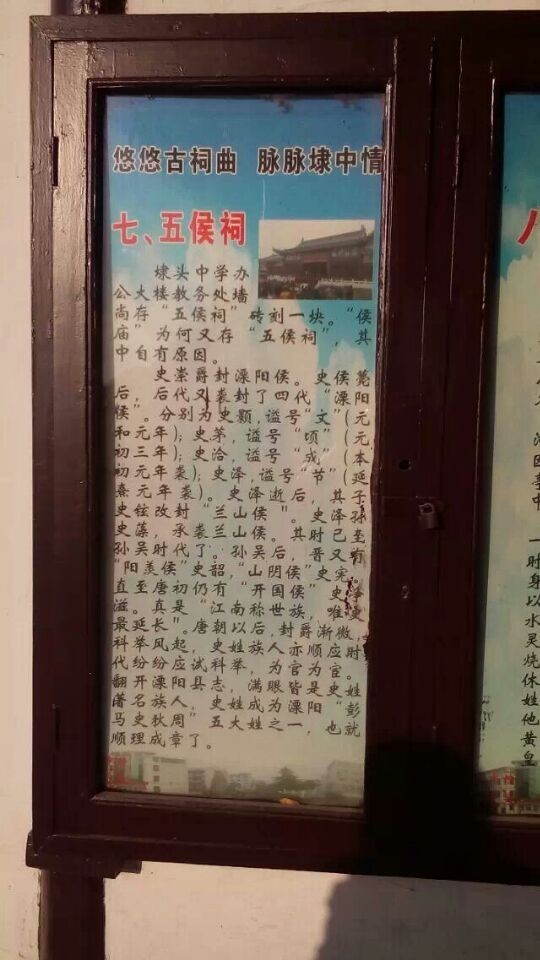 悠悠古祠曲 脉脉埭中情
七、五侯祠
埭头中学办
公大楼教务处墙
尚存“五侯祠”砖刻一块。“侯
庙”为何又存“五侯祠”，其
中自有原因。
史崇爵封溧阳侯。史侯薨
后，后代又袭封了四代“溧阳
侯”。分别为史颢，谥号“文”（元
和元年）；史茅，谥号“顷”（元
初三年）；史洽，谥号“成”（本
初元年袭）；史泽，谥号“节”（延
熹元年袭）。史泽逝后，其子
史铉改封“兰山侯”。史泽孙
史藻，承袭兰山侯。其时已至
孙吴时代了。孙吴后，晋又有
“阳羡侯”史韶，“山阴侯”史宪。
直至唐初仍有“开国侯”史
滋。真是“江南称世族，唯史
最延长”。唐朝以后，封爵渐微，
科举风起，史姓族人亦顺应时
代纷纷应试科举，为官为宦。
翻开溧阳县志，满眼皆是史姓
著名族人，史姓成为溧阳“彭
马史狄周”五大姓之一，也就
顺理成章了。
八
一
时
身
以
水
灵
烧
休
姓
他
黄
皇